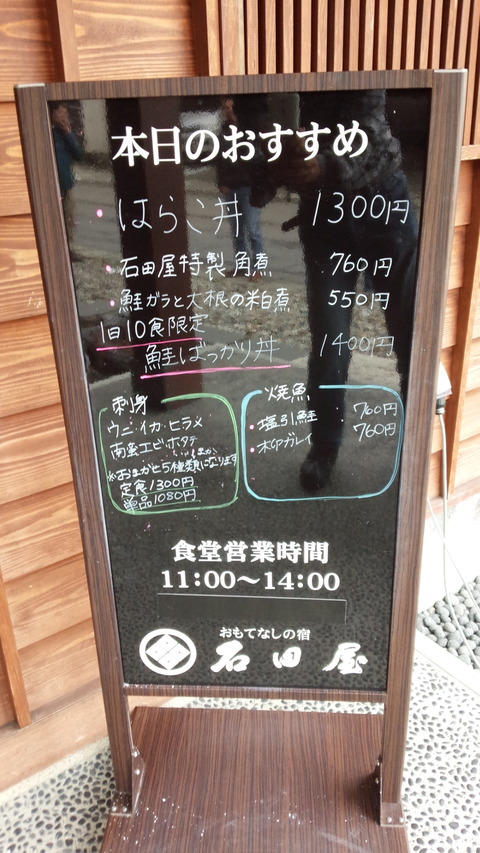 本日のおすすめ
・はらこ丼 1300円
・石田屋特製角煮 760円
・鮭ガラと大根の粕煮 550円
1日10食限定
鮭ばっかり丼 1400円
刺身
ウニ・イカ・ヒラメ
南蛮エビ・ホタテ
定食1300円
単品1080円
焼魚
・塩引鮭 700円
760円
食堂営業時間
11:00〜14:00
おもてなしの宿
石田屋